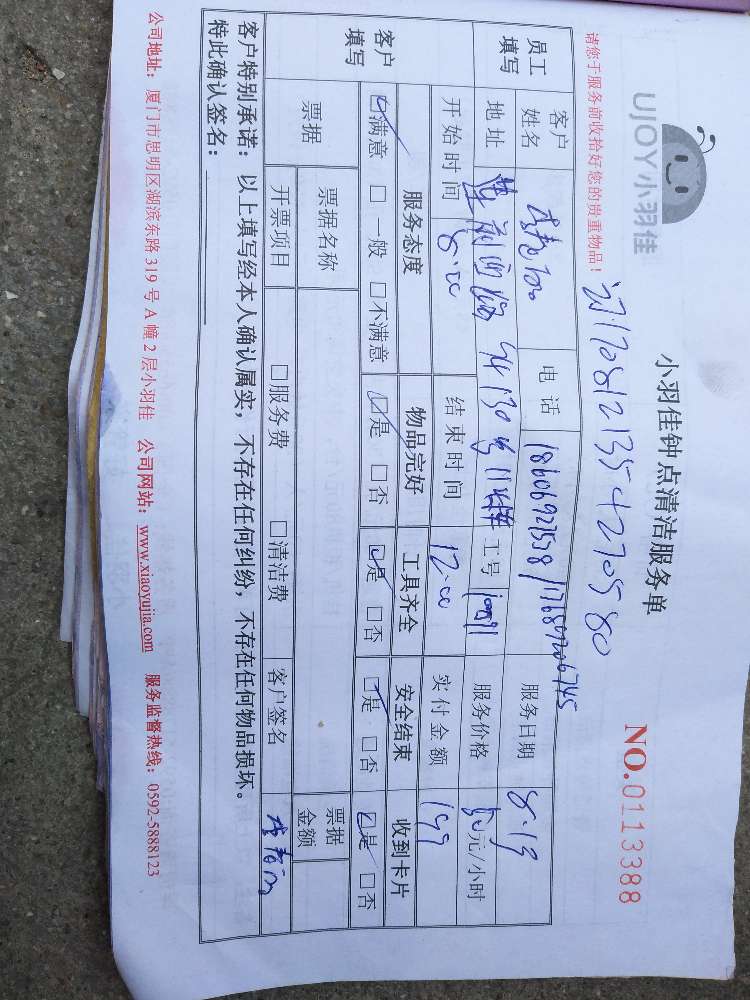 UJOY小羽佳
小羽佳钟点清洁服务单
NO.0113388
请您于服务前收拾好您的贵重物品！
员工填写 客户姓名 电话 18606927538 服务日期 8.19
地址 130号 工号 服务价格 元/小时
开始时间 8:00 结束时间 12:00 实付金额 199
客户填写 服务态度 物品完好 工具齐全 安全结束 收到卡片
☑满意 □一般 □不满意 ☑是 □否 ☑是 □否 ☑是 □否 ☑是 □否
票据 票据名称 票据金额
开票项目 □服务费 □清洁费 客户签名
客户特别承诺：以上填写经本人确认属实，不存在任何纠纷，不存在任何物品损坏。
特此确认签名：
公司地址：厦门市思明区湖滨东路319号A幢2层小羽佳 公司网站：www.xiaoyujia.com 服务监督热线：0592-5888123